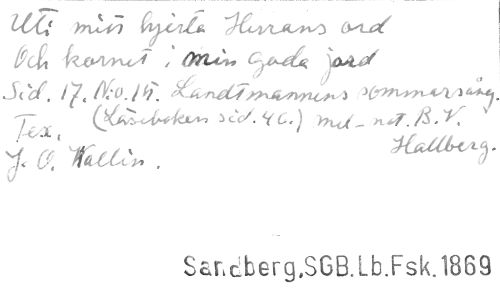 Uti mitt hjerta Herrans ord
Och kornet i min goda jord
Sid. 17. No. 15. Landtmannens sommarsång.
(Läseboken sid. 46.) mel-not. B. V.
Tex. Hallberg.
J. O. Wallin.
Sandberg,SGB.Lb.Fsk.1869